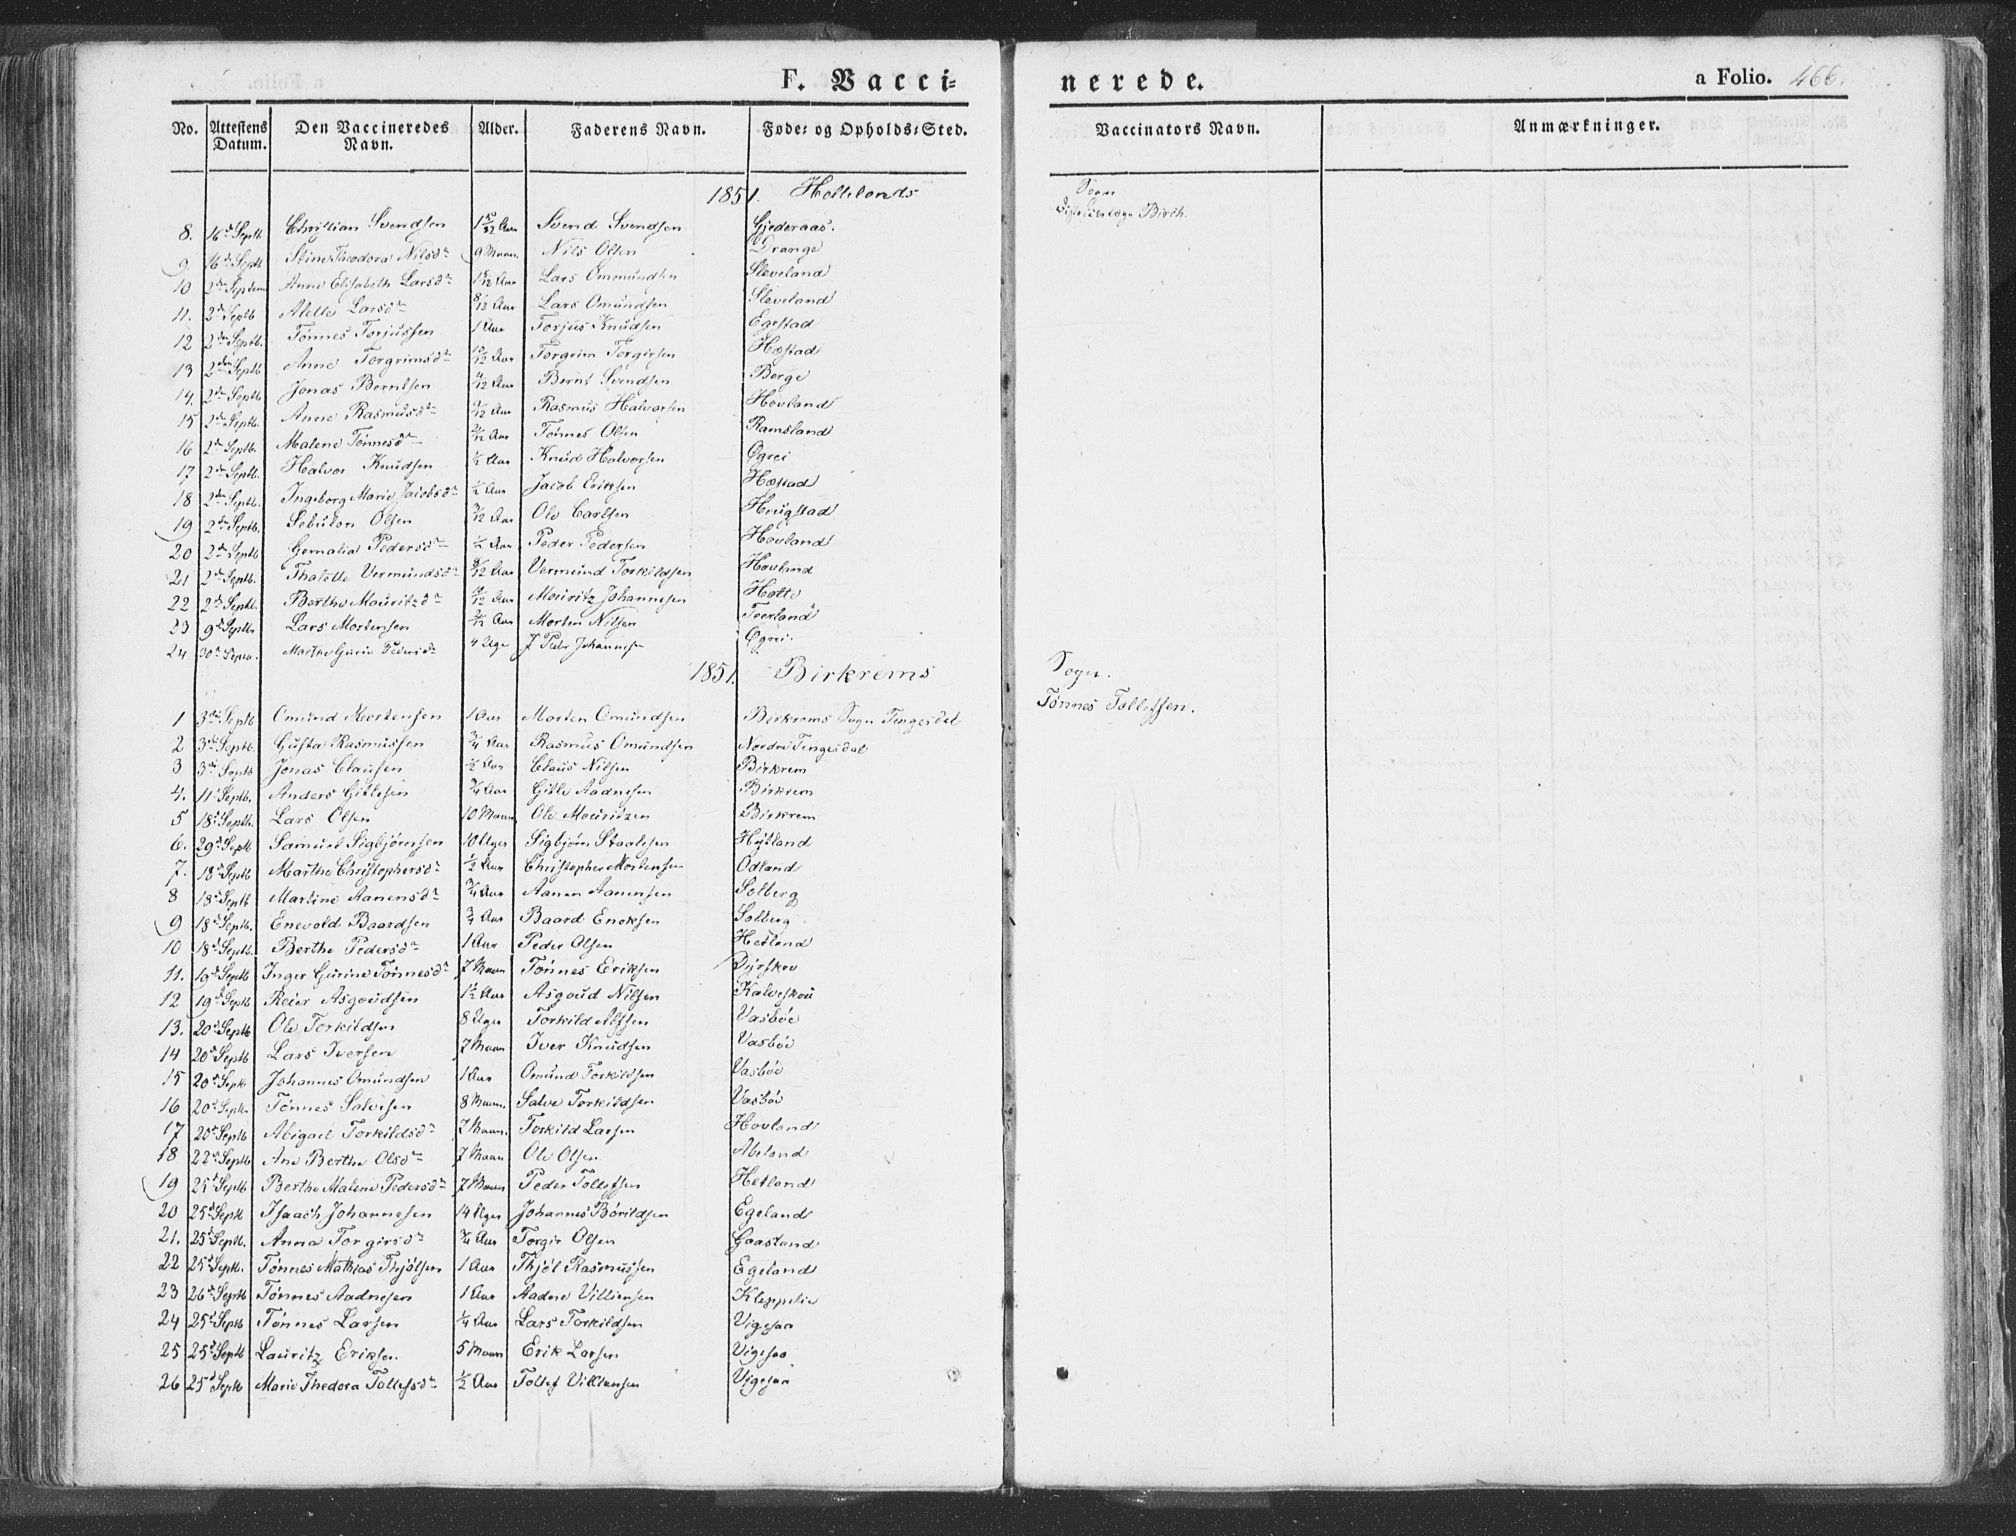 F. Vacci=
nerede.
a Folio. 466.
No. Attestens Datum. Den Vaccineredes Navn. Alder. Faderens Navn. Føde= og Opholds=Sted. Vaccinators Navn. Anmærkninger.
1851. Hellelands Sogn
8. 16d Septb Christian Svendsen Svend Svendsen Gjederaas. Birch.
9 16d Septb Stine Theodora Nilsdr 9 Maan. Nils Olsen Drange
10 2den Septem Anne Elisabeth Larsdr Lars Ommundsen Sleveland
11. 2den Septb Alette Larsdr 8/12 Aar Lars Omundsen Sleveland
12 2den Septb. Tønnes Torjussen 1 Aar Torjus Knudsen Egestad
13 2den Septb Anne Torgrimsdr 10/12 Aar Torgrim Torgirsen Hæstad
14. 2den Septb Jonas Berntsen Aar Bernt Svendsen Berge
15 2den Septb. Anne Rasmusdr Aar Rasmus Halvorsen Hovland
16 2den Septb. Malene Tønnesdr Aar Tønnes Olsen Ramsland
17 2den Septb. Halvor Knudsen 1/2 Aar Knud Halvorsen Øgrei
18 2den Septb. Ingeborg Marie Jacobsdr 1/2 Aar Jacob Eriksen Hæstad
19 2den Septb. Sebulon Olsen Aar Ole Carlsen Haugstad
20 2den Septb Gemalia Pedersdr 1/2 Aar Peder Pedersen Hovland
21 2den Septb. Thalette Vermundsdr Aar Vermund Torkildsen Hovland
22 2den Septb. Berthe Mauritzdr 10/12 Aar Mouritz Johannesen Hotte
23 9d Septb. Lars Mortensen Aar Morten Nilsen Tverland
24 30te Septb. Marthe Gurie Pedersdr 4 Uge Peder Johannesen Øgrei.
1851. Birkrems Sogn.
1 3die Septb Omund Mortensen 1 Aar Morten Omundsen Birkrems Sogn Tengesdal Tønnes Tollefsen.
2 3die Septb. Gusta Rasmussen 3/4 Aar Rasmus Omundsen Nordre Tengesdal
3 3die Septb Jonas Clausen 1/2 Aar Claus Nilsen Birkrem
4. 11te Septb. Anders Gitlesen 3/4 Aar Gitle Aadnesen Birkrem
5 18d Septb. Lars Olsen 10 Maan Ole Mouritzen Birkrem
6. 29d Septb Samuel Sigbjørnsen 10 Uger Sigbjørn Staalesen Hetland
7. 18d Septb Marthe Christophersdr 1/2 Aar Christopher Mortensen Ødland
8 18d Septb Martine Aanensdr 3/4 Aar Aanen Aanensen Solberg
9 18d Septb. Enevold Baardsen 3/4 Aar Baard Enoksen Solberg
10 18d Septb. Berthe Pedersdr 1 Aar Peder Olsen Hetland
11. 19d Septb Inger Gurine Tønnesdr 7 Maan Tønnes Eriksen Dyrskov
12 19d Septb Reier Asgoudsen 1 1/2 Aar Asgoud Nilsen Kalveskou
13. 20d Septb Ole Torkildsen 8 Uger Torkild Alfsen Vasbøe
14 20d Septb Lars Iversen 7 Maan Iver Knudsen Vasbøe
15 20d Septb Johannes Omundsen 1 Aar Omund Torkildsen Vasbøe
16 20d Septb. Tønnes Salvesen 8 Maan. Salve Torkildsen Vasbøe
17 20d Septb Abigael Torkildsdr 7 Maan. Torkild Larsen Hovland
18 22d Septb Ane Berthe Olsdr 7 Maan Ole Olsen Abeland
19 25d Septb Berthe Malene Pedersdr 7 Maan Peder Tollefsen Hetland
20 25d Septb Isaach Johannesen 14 Uger Johannes Børildsen Egeland
21. 25d Septb. Anna Torgirsdr 3/4 Aar Torgir Olsen Gaasland
22 25d Septb. Tønnes Mathias Thjølsen 1 Aar Thjøl Rasmussen Egeland
23 26d Septb Tønnes Aadnesen 1 Aar Aadne Villiensen Kleppelie
24 25d Septb Tønnes Larsen 1/4 Aar Lars Torkildsen Vigesaa
25 25d Septb Lauritz Eriksen. 5 Maan Erik Larsen Vigesaa
26 25d Septb Marie Thedora Tollefsdr 1/2 Aar Tollef Villiensen Vigesaa